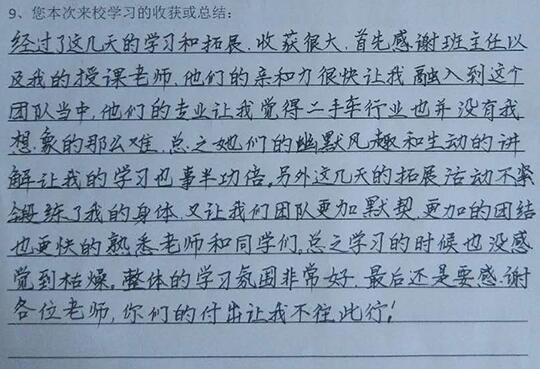 9、您本次来校学习的收获或总结：
经过了这几天的学习和拓展.收获很大.首先感谢班主任以
及我的授课老师.他们的亲和力很快让我融入到这个
团队当中,他们的专业让我觉得二手车行业也并没有我
想象的那么难.总之她们的幽默风趣和生动的讲
解让我的学习也事半功倍。另外这几天的拓展活动不紧
锻练了我的身体.又让我们团队更加默契.更加的团结
也更快的熟悉老师和同学们。总之学习的时候也没感
觉到枯燥。整体的学习氛围非常好.最后还是要感谢
各位老师,你们的付出让我不往此行!